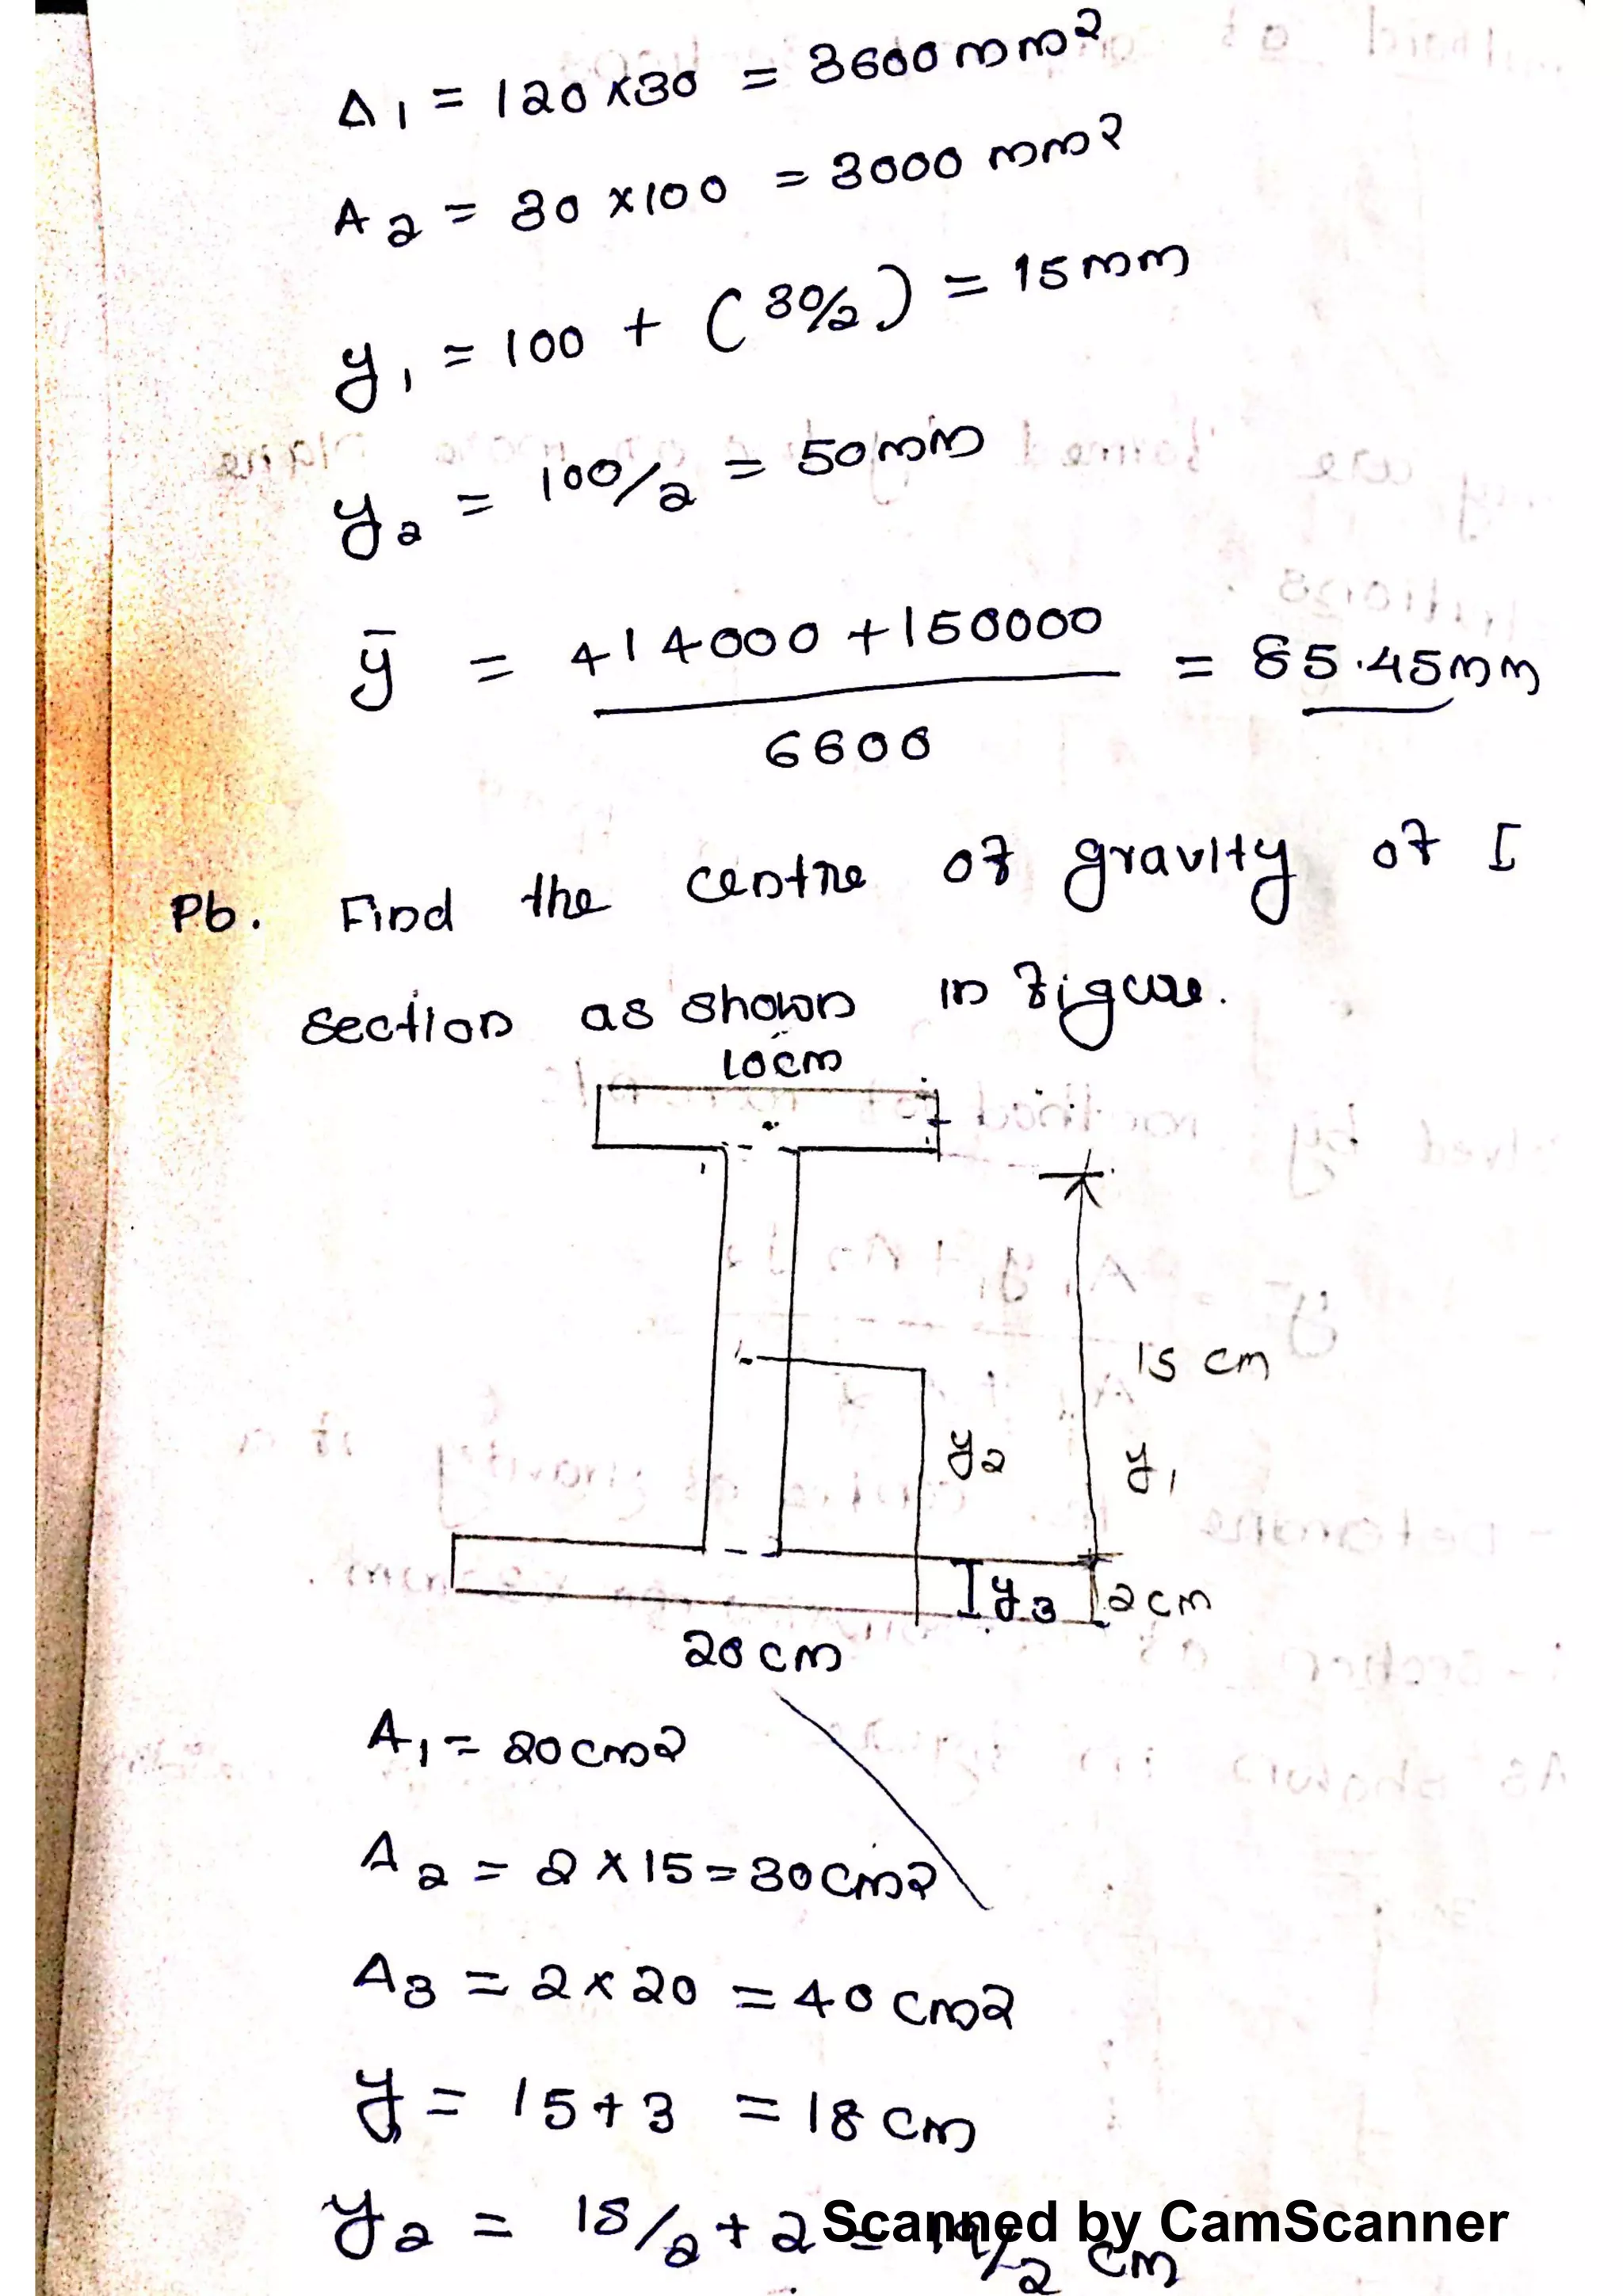 A1 = 120 x 30 = 3600 mm2
A2 = 30 x 100 = 3000 mm2
y1 = 100 + (30/2) = 15 mm
y2 = 100/2 = 50 mm
ȳ = 414000 + 150000 / 6600 = 85.45 mm
Pb. Find the centre of gravity of I
section as shown in figure.
10 cm
15 cm
y2
y1
y3
2 cm
20 cm
A1 = 20 cm2
A2 = 2 x 15 = 30 cm2
A3 = 2 x 20 = 40 cm2
y1 = 15 + 3 = 18 cm
y2 = 15/2 + 2 = 19/2 cm
Scanned by CamScanner